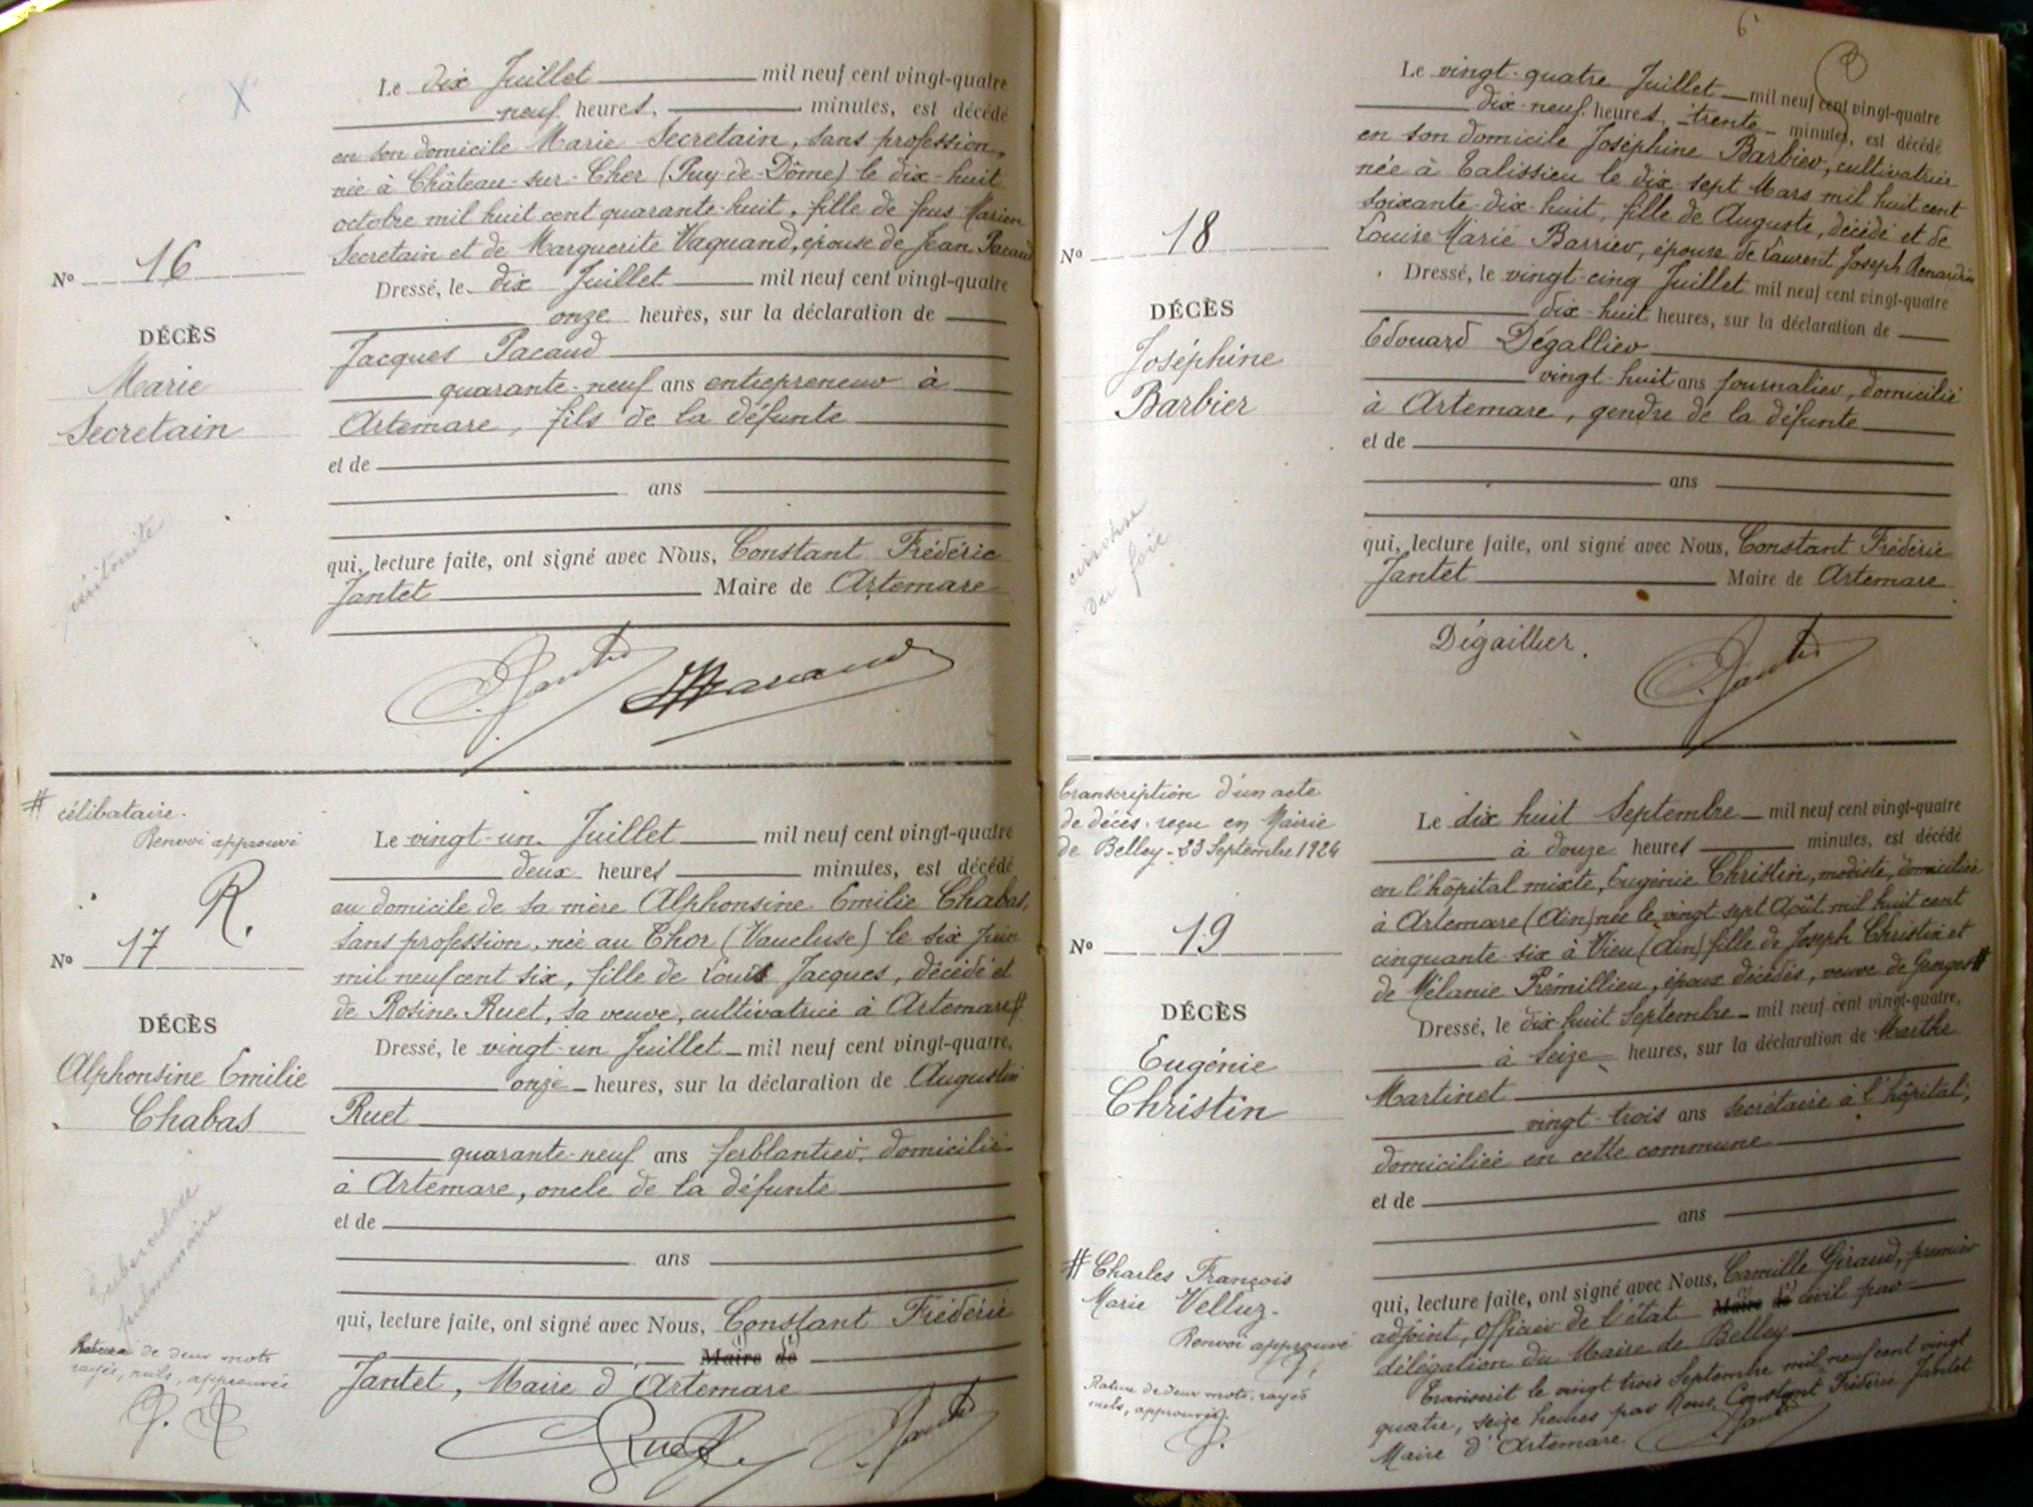 X
Le dix Juillet mil neuf cent vingt-quatre
neuf heures, minutes, est décédé
en son domicile Marie Secretain, sans profession,
née à Château-sur-Cher (Puy-de-Dôme) le dix-huit
octobre mil huit cent quarante-huit, fille de feus Marien
Secretain et de Marguerite Vaquand, épouse de Jean Pacaud
Nº 16
Dressé, le dix Juillet mil neuf cent vingt-quatre
onze heures, sur la déclaration de
DÉCÈS
Marie
Secretain
Jacques Pacaud
quarante-neuf ans entrepreneur à
Artemare, fils de la défunte
et de
ans
péritonite
qui, lecture faite, ont signé avec Nous, Constant Frédéric
Jantet Maire de Artemare
Jantet
# célibataire.
Renvoi approuvé
R.
Le vingt-un Juillet mil neuf cent vingt-quatre
deux heures, minutes, est décédé
au domicile de sa mère Alphonsine Emilie Chabas,
sans profession, née au Thor (Vaucluse) le six juin
mil neuf cent six, fille de Louis Jacques, décédé et
de Rosine Ruet, sa veuve, cultivatrice à Artemare #
Nº 17
DÉCÈS
Alphonsine Emilie
Chabas
Dressé, le vingt-un Juillet mil neuf cent vingt-quatre,
onze heures, sur la déclaration de Augustin
Ruet
quarante-neuf ans ferblantier, domicilié
à Artemare, oncle de la défunte
et de
ans
Tuberculose
pulmonaire
qui, lecture faite, ont signé avec Nous, Constant Frédéric
Maire de
Jantet, Maire d'Artemare
Rature de deux mots
rayés, nuls, approuvés
J. R
Ruet Jantet
6
Le vingt-quatre Juillet mil neuf cent vingt-quatre
dix-neuf heures, trente minutes, est décédé
en son domicile Joséphine Barbier, cultivatrice
née à Talissieu le dix-sept Mars mil huit cent
soixante-dix-huit, fille de Auguste, décédé et de
Louise Marie Barrier, épouse de Laurent Joseph Renardin
Nº 18
DÉCÈS
Joséphine
Barbier
Dressé, le vingt-cinq Juillet mil neuf cent vingt-quatre
dix-huit heures, sur la déclaration de
Edouard Dégallier
vingt-huit ans journalier, domicilié
à Artemare, gendre de la défunte
et de
ans
cirrhose
du foie
qui, lecture faite, ont signé avec Nous, Constant Frédéric
Jantet Maire de Artemare
Dégaillier. Jantet
Transcription d'un acte
de décès reçu en Mairie
de Belley - 23 Septembre 1924
Le dix huit Septembre mil neuf cent vingt-quatre
à douze heures minutes, est décédé
en l'hôpital mixte, Eugénie Christin, modiste, domiciliée
à Artemare (Ain) née le vingt sept Août mil huit cent
cinquante-six à Vieu (Ain) fille de Joseph Christin et
de Mélanie Prémillieu, époux décédés, veuve de Georges #
Nº 19
DÉCÈS
Eugénie
Christin
Dressé, le dix-huit Septembre mil neuf cent vingt-quatre,
à seize heures, sur la déclaration de Marthe
Martinet
vingt-trois ans secrétaire à l'hôpital,
domiciliée en cette commune
et de
ans
# Charles François
Marie Velluz.
Renvoi approuvé
J.
Rature de deux mots, rayés
nuls, approuvés.
J.
qui, lecture faite, ont signé avec Nous, Camille Giraud, premier
adjoint, officier de l'état Maire de civil par
délégation du Maire de Belley
Transcrit le vingt trois Septembre mil neuf cent vingt
quatre, seize heures par Nous Constant Frédéric Jantet
Maire d'Artemare Jantet